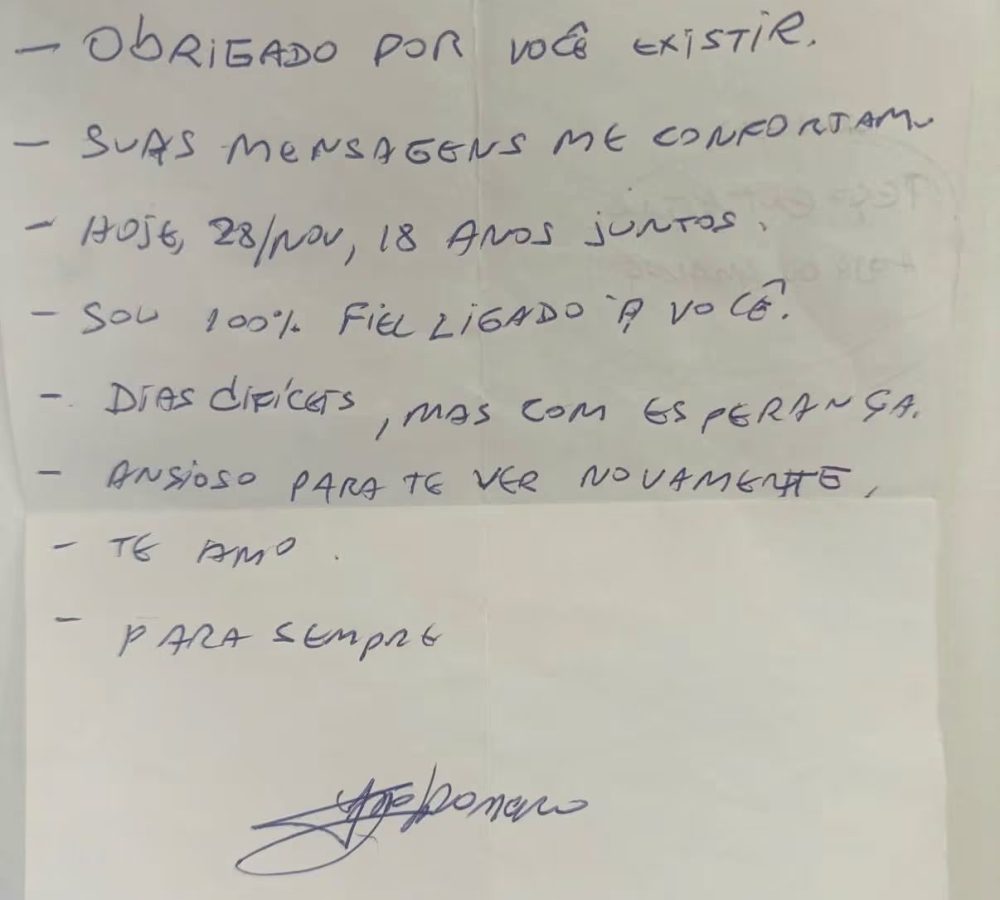 - OBRIGADO POR VOCÊ EXISTIR.
- SUAS MENSAGENS ME CONFORTAM.
- HOJE, 28/NOV, 18 ANOS JUNTOS.
- SOU 100% FIEL LIGADO À VOCÊ.
- DIAS DIFÍCEIS, MAS COM ESPERANÇA.
- ANSIOSO PARA TE VER NOVAMENTE,
- TE AMO.
- PARA SEMPRE